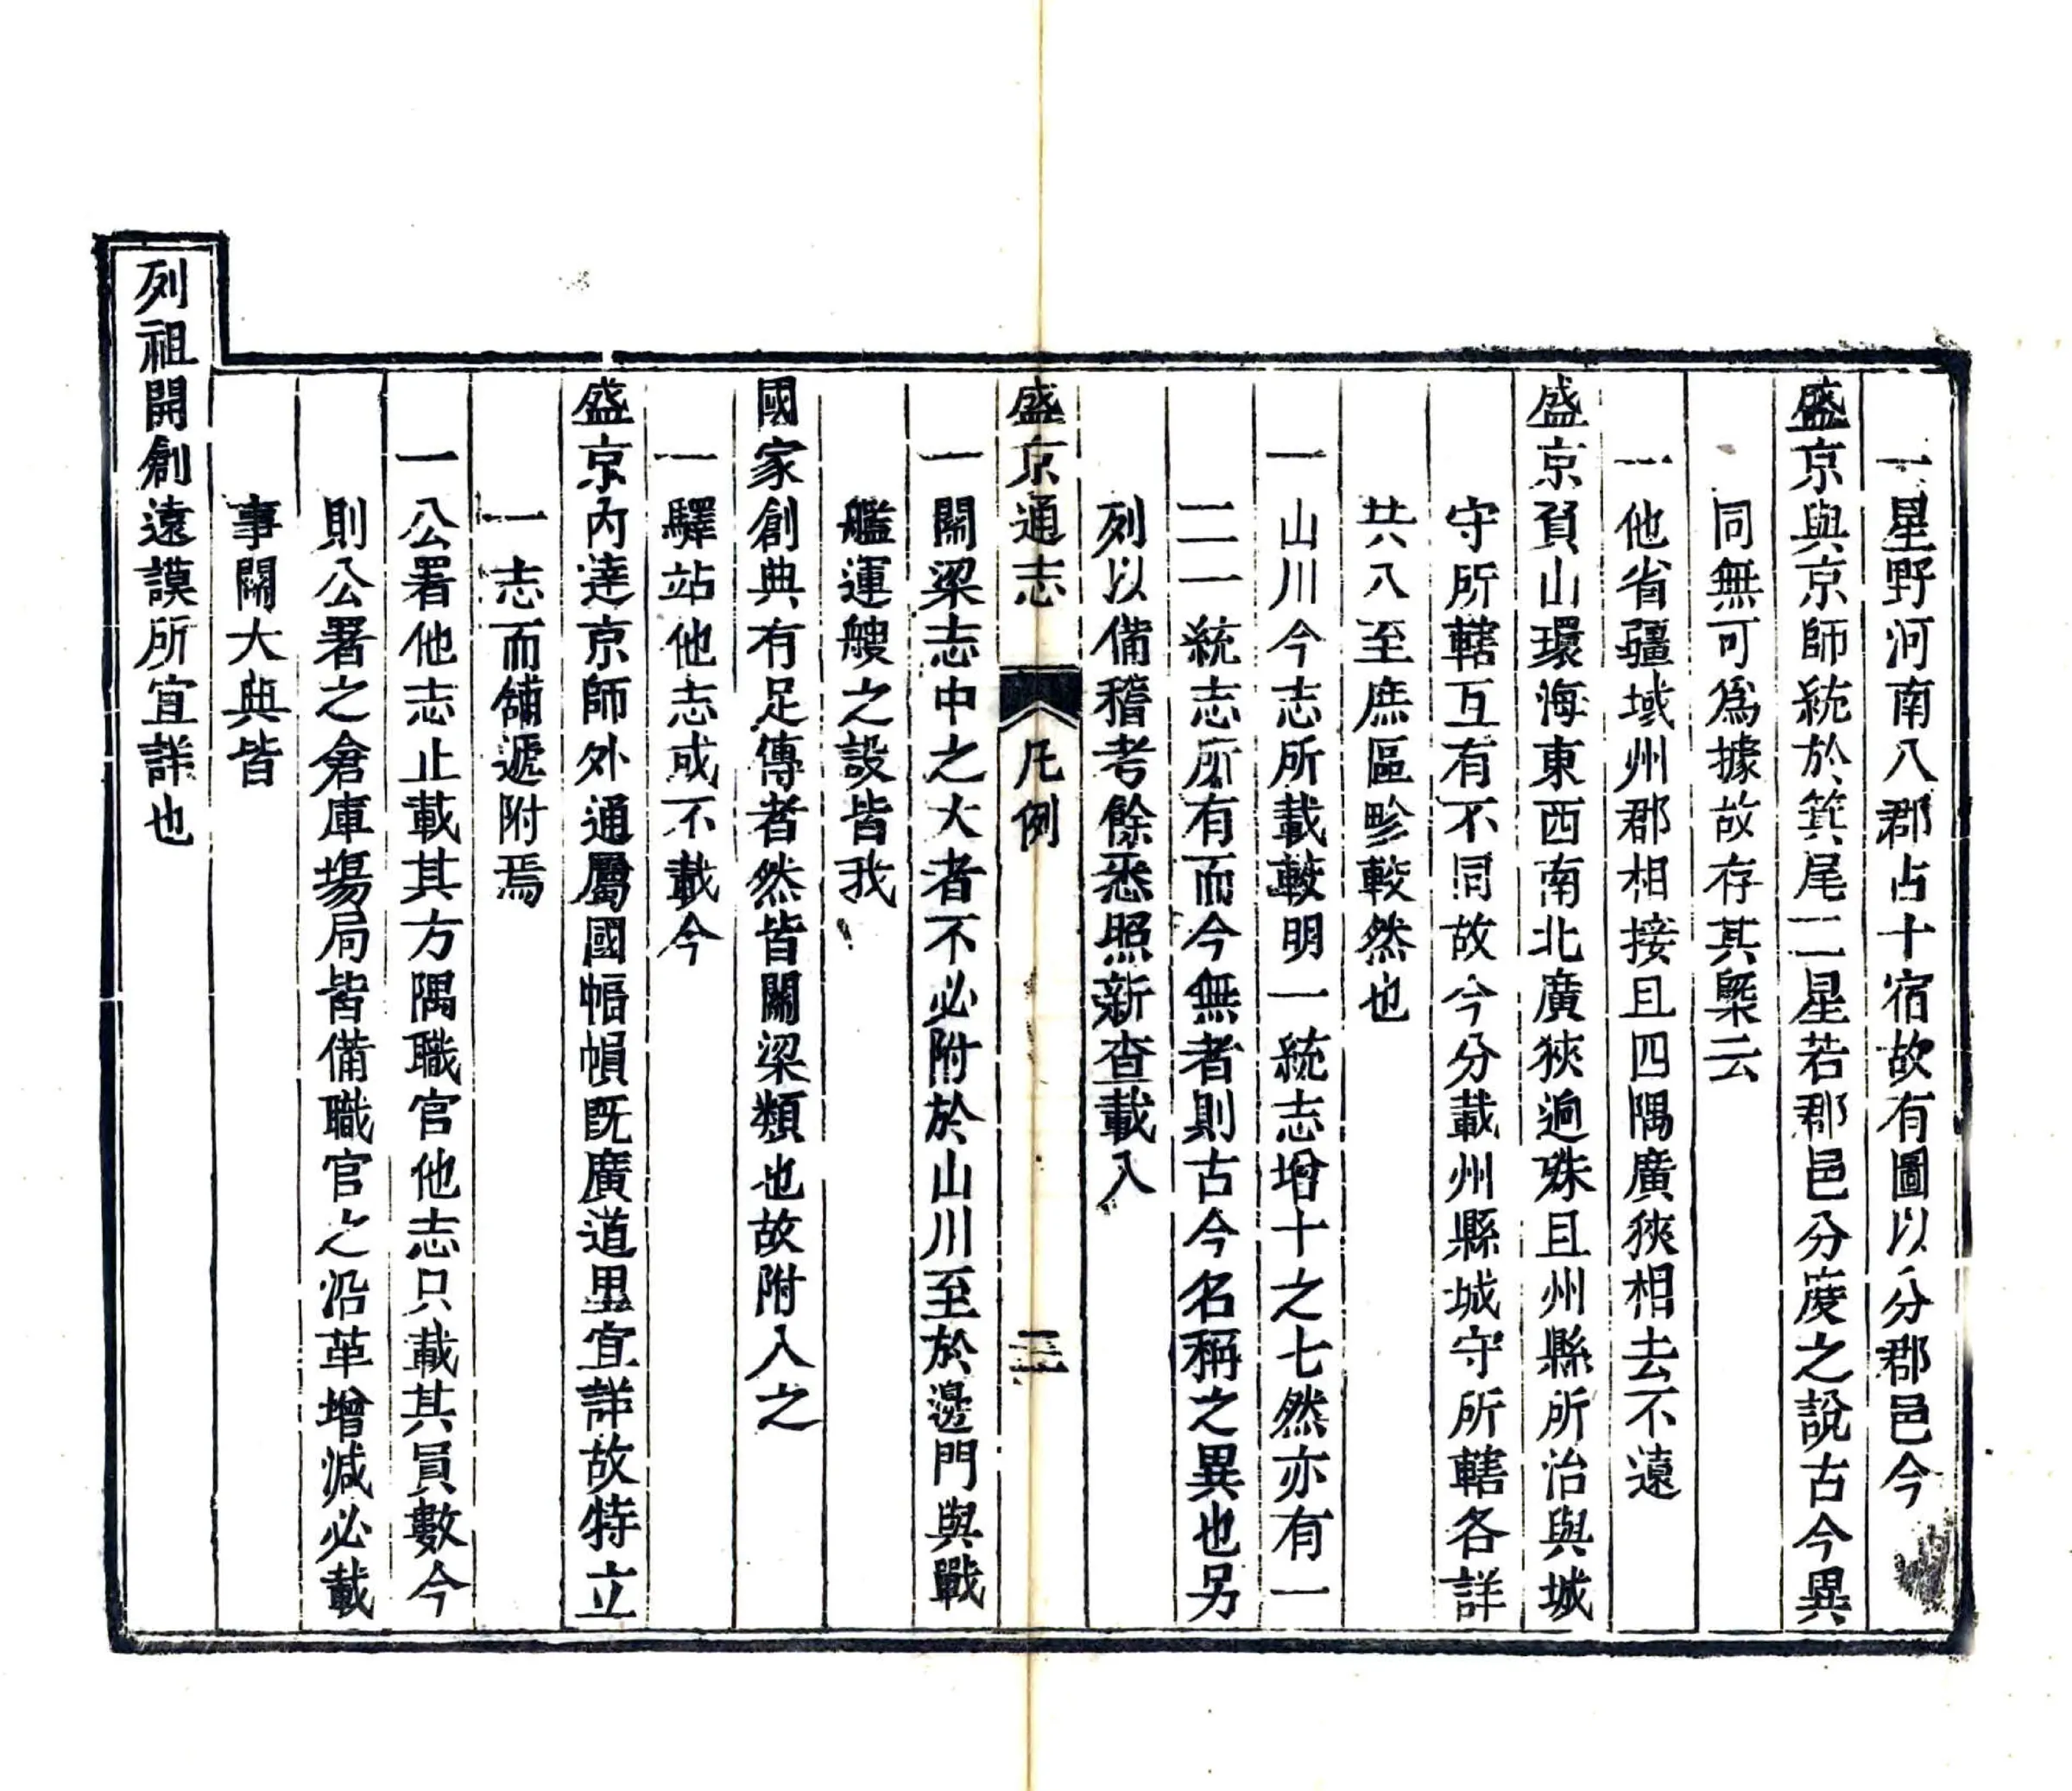 一星野河南八郡占十宿故有圖以分郡邑今
盛京與京師統於箕尾二星若郡邑分度之說古今異
同無可為據故存其槩云
一他省疆域州郡相接且四隅廣狹相去不遠
盛京負山環海東西南北廣狹逈殊且州縣所治與城
守所轄互有不同故今分載州縣城守所轄各詳
共八至庶區畛較然也
一山川今志所載較明一統志增十之七然亦有一
二一統志所有而今無者則古今名稱之異也另
列以備稽考餘悉照新查載入
盛京通志 凡例 三
一關梁志中之大者不必附於山川至於邊門與戰
艦運艘之設皆我
國家創典有足傳者然皆關梁類也故附入之
一驛站他志或不載今
盛京內達京師外通屬國幅幀既廣道里宜詳故特立
一志而舖遞附焉
一公署他志止載其方隅職官他志只載其員數今
則公署之倉庫場局皆備職官之沿革增減必載
事關大典皆
列祖開創遠謨所宜詳也